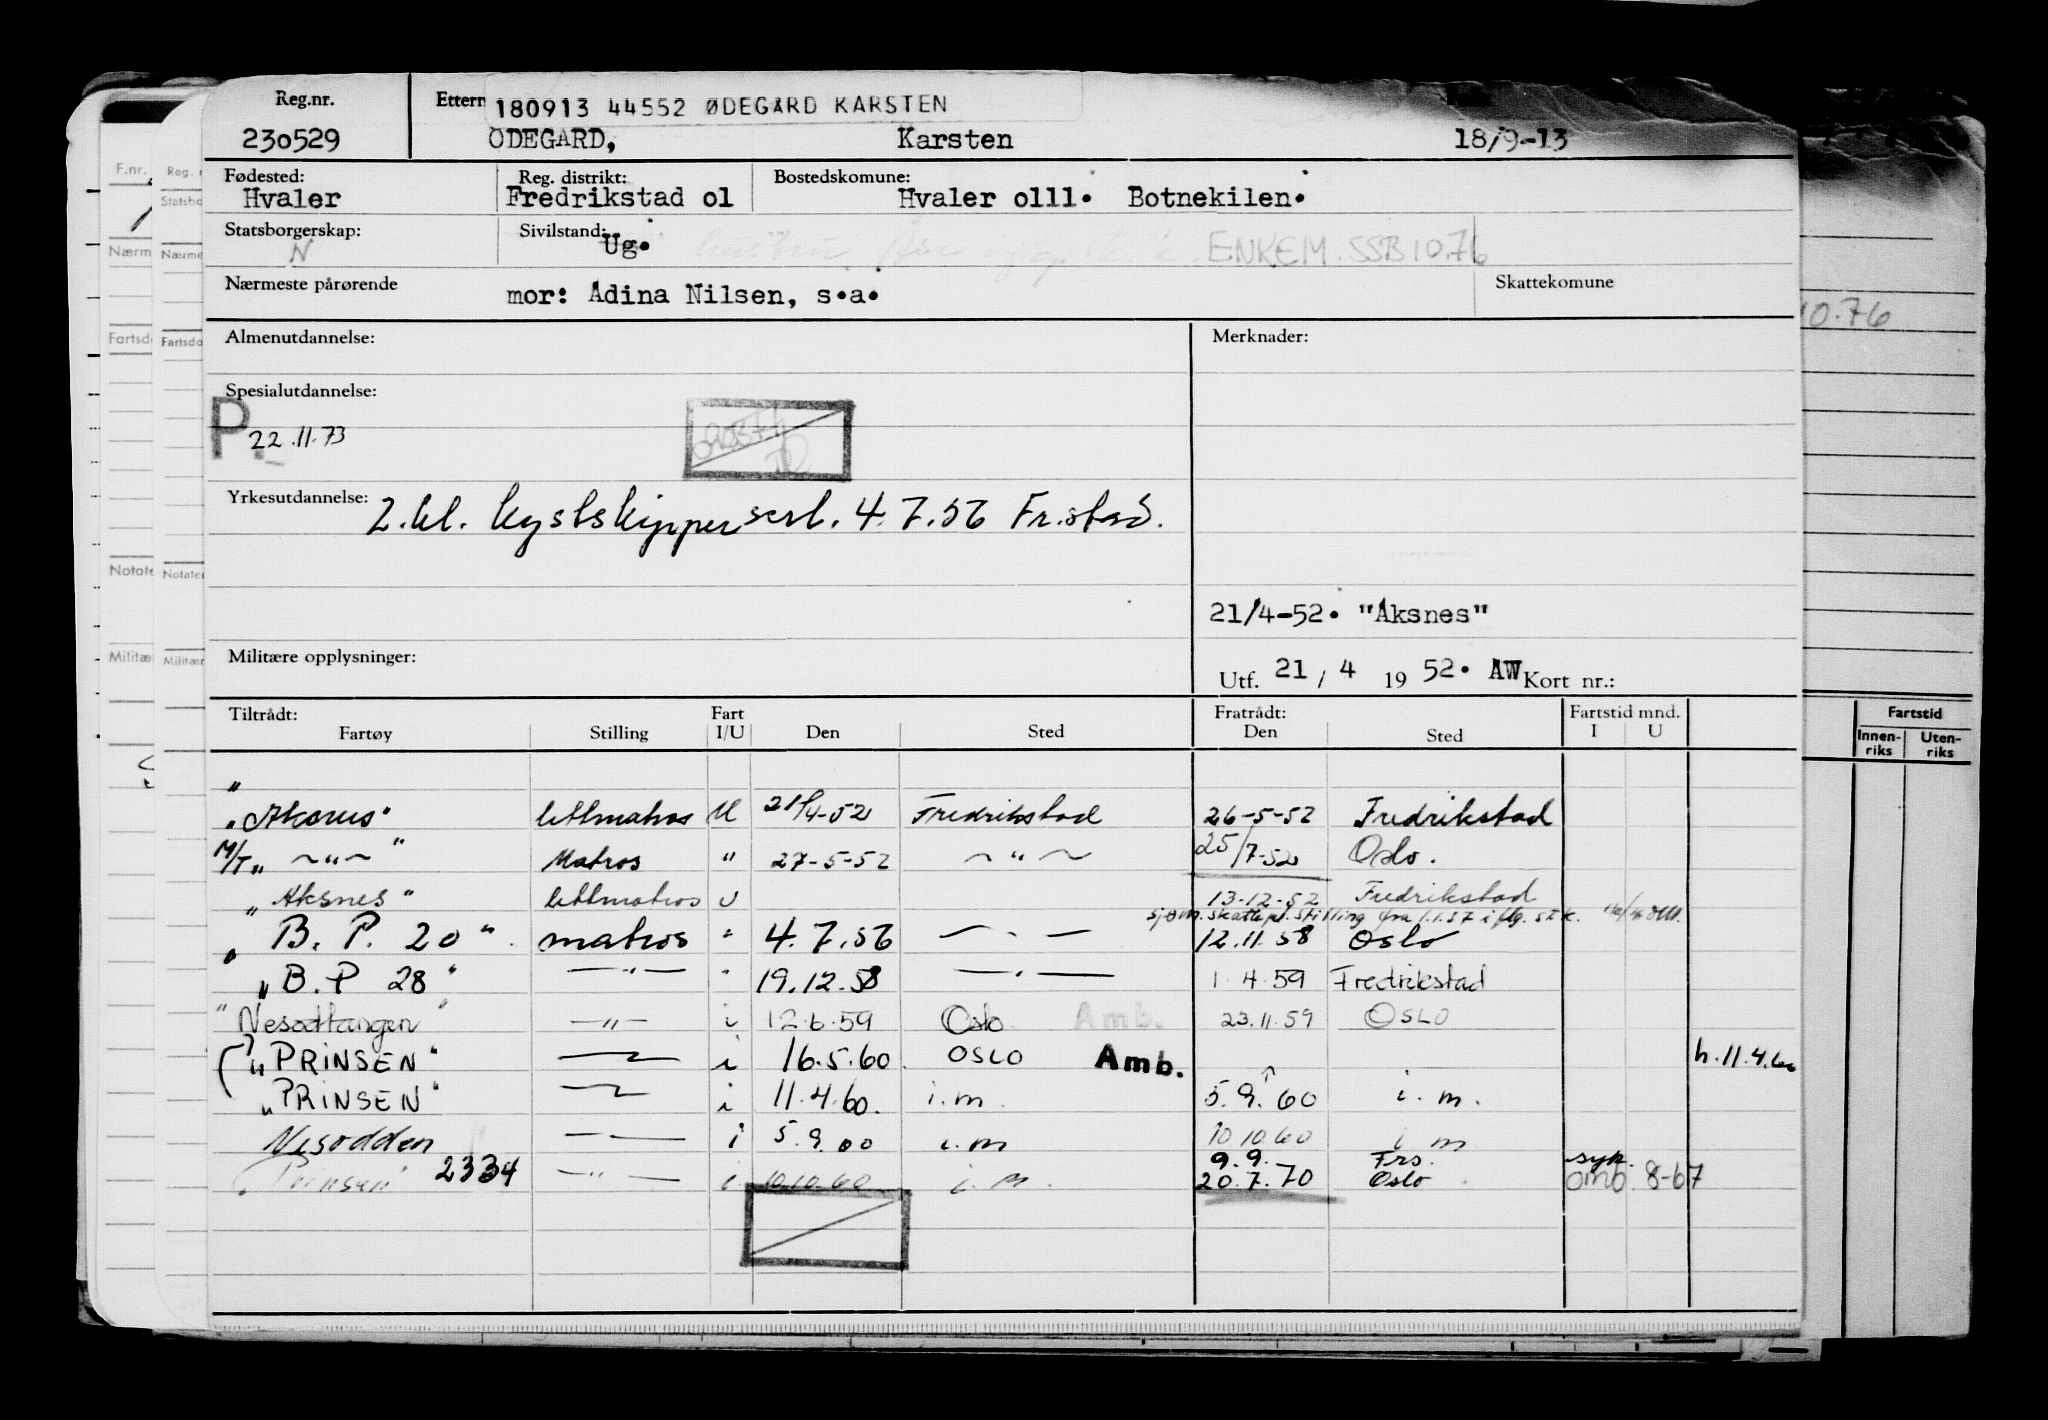 Reg.nr. Ettern 180913 44552 ØDEGÅRD KARSTEN
230529 ODEGARD, Karsten 18/9-13
Fødested: Reg. distrikt: Bostedskomune:
Hvaler Fredrikstad o1 Hvaler o111. Botnekilen.
Statsborgerskap: N Sivilstand: Ug. ENKEM. SSB 10.76
Nærmeste pårørende mor: Adina Nilsen, s.a. Skattekomune
10.76
Almenutdannelse: Merknader:
Spesialutdannelse:
P. 22.11.73
Yrkesutdannelse: 2.kl. kystskippersert. 4.7.56 Fr.stad.
21/4-52. "Aksnes"
Militære opplysninger:
Utf. 21 / 4 19 52. AW Kort nr.:
Tiltrådt: Fart Fratrådt: Fartstid mnd.
Fartøy Stilling I/U Den Sted Den Sted I U
Fartstid
Innen-riks Uten-riks
"
" lettmatros U 21/4-52 Fredrikstad 26-5-52 Fredrikstad
M/T " ~"~ " Matros " 27-5-52 ~"~ 25/7-52 Oslo.
" Aksnes " lettmatros U 13-12-52 Fredrikstad
sjøm. skattepl. stilling fra 1.1.57 iflg.
" B. P. 20 " matros " 4.7.56 — " — 12.11.58 Oslo
" B.P 28 " — " — " 19.12.58 — " — 1.4.59 Fredrikstad
" Nesodtangen " — " — i 12.6.59 Oslo Amb. 23.11.59 OSLO
" PRINSEN " i 16.5.60 OSLO Amb. h.11.4.60
" PRINSEN " i 11.4.60. i.m. 5.9.60 i.m.
Nesodden i 5.9.60 i.m 10.10.60 i m
" Prinsen " 2334 — " — i 10.10.60 i.m. 9.9. Frs. syk.
20.7.70 Oslo omb. 8-67
F.nr.
Nærm
Fartsd
Notate
Militæ
Reg. n
Statsbo
Nærme
Fartsdo
Notater
Militær